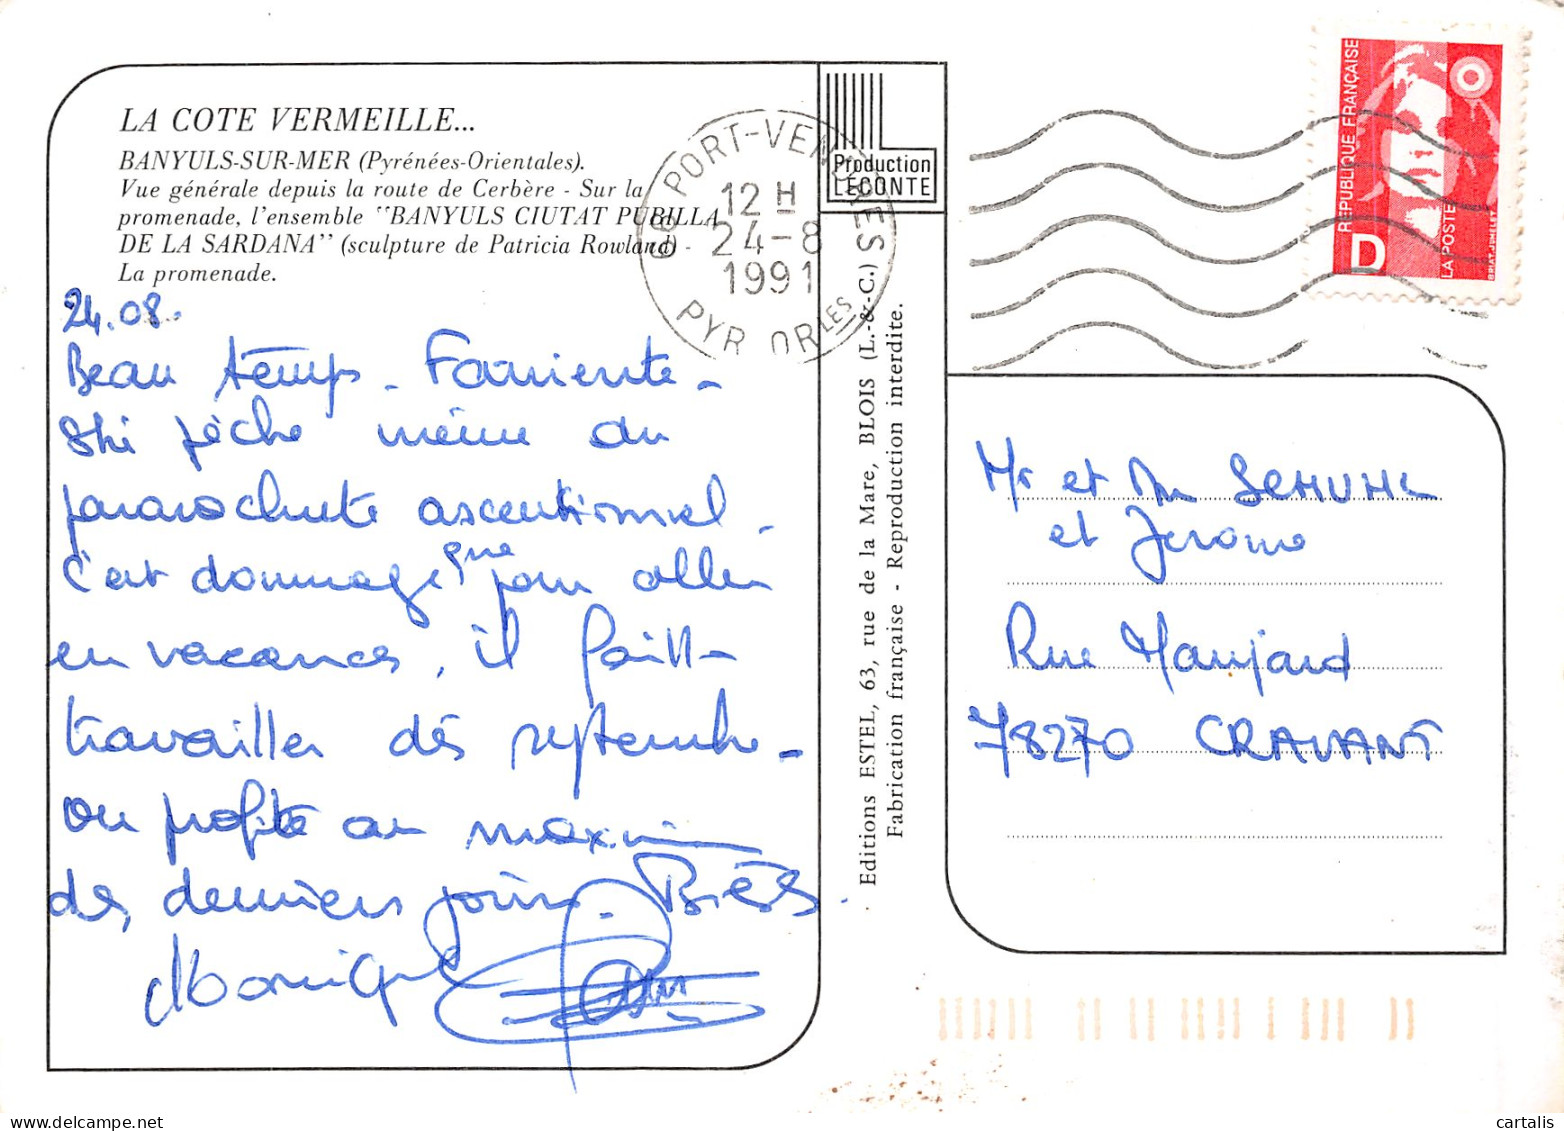 LA COTE VERMEILLE...
BANYULS-SUR-MER (Pyrénées-Orientales).
Vue générale depuis la route de Cerbère - Sur la
promenade, l'ensemble "BANYULS CIUTAT PUBILLA
DE LA SARDANA" (sculpture de Patricia Rowland) -
La promenade.
24.08.
Beau temps - Farniente -
Ski pêche même du
parachute ascentionnel -
C'est dommage que pour aller
en vacances, il faille
travailler dès septembre -
On profite au maximum
des derniers jours. Bises.
Monique
66 PORT-VENDRES
12 H
24-8
1991
PYR ORLES
Production
LECONTE
Editions ESTEL, 63, rue de la Mare, BLOIS (L.-&-C.)
Fabrication française - Reproduction interdite.
REPUBLIQUE FRANÇAISE
D
LA POSTE
BRIAT-JUMELET
Mr et Me SCHUHL
et Jerome
Rue Maujard
78270 CRAVANT
cartalis